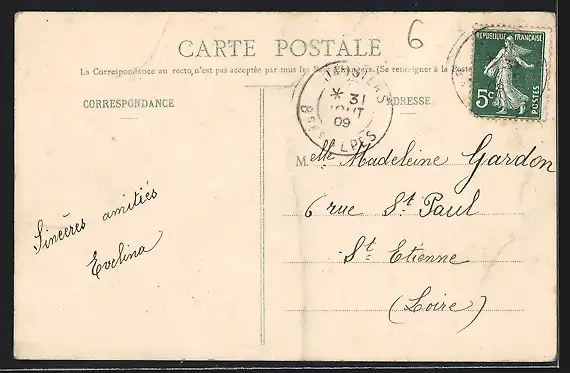 6
CARTE POSTALE
La Correspondance au recto, n'est pas acceptée par tous les Pays étrangers. (Se renseigner à la Poste
RÉPUBLIQUE FRANÇAISE
5c
POSTES
CORRESPONDANCE
ADRESSE
JAUSIERS
* 31
AOUT
09
BSES ALPES
Melle Madeleine Gardon
6 rue St Paul
St Etienne
(Loire)
Sincères amitiés
Evelina